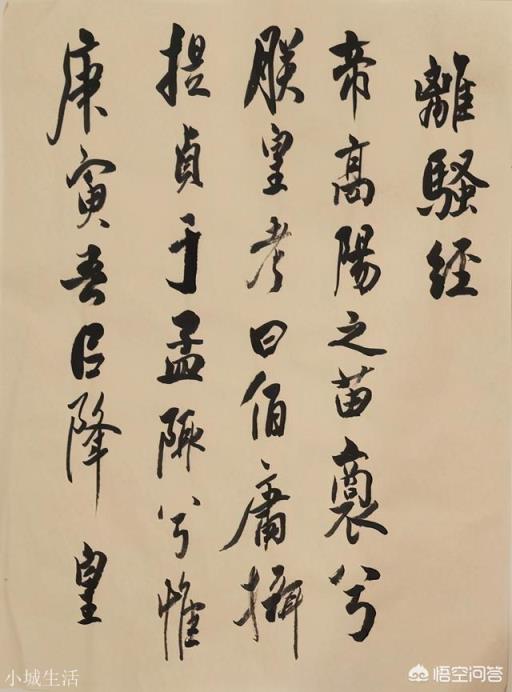 離騷經
帝高陽之苗裔兮
朕皇考曰伯庸攝
提貞于孟陬兮惟
庚寅吾㠯降皇
小城生活
悟空问答